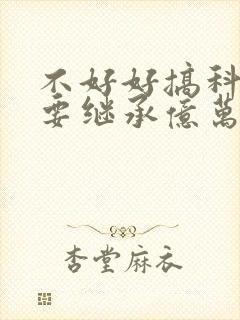 不好好搞科
要继承億萬
杏堂麻衣